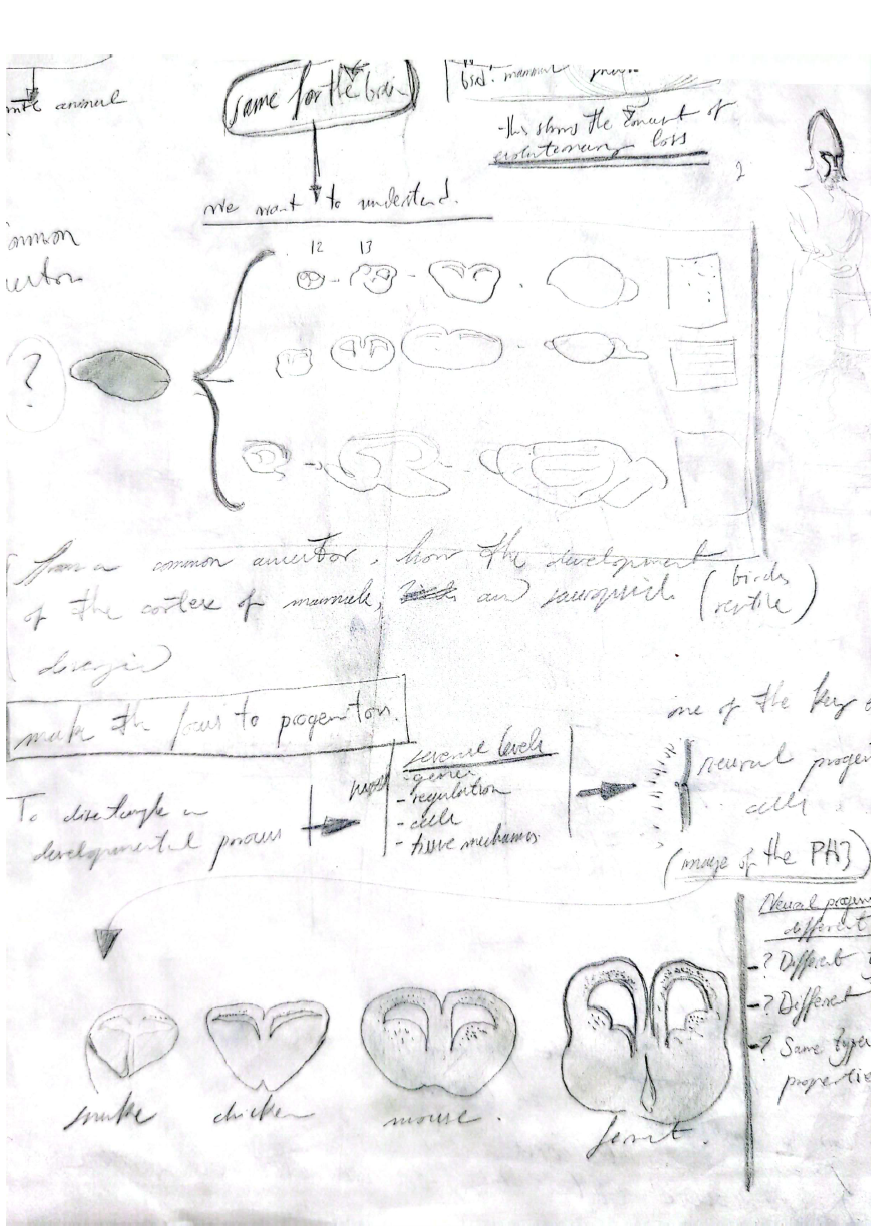 animal
same for the brain
mammal
-this shows the concept of
evolutionary loss
2
we want to understand.
common
12 13
?
from a common ancestor, how the development
of the cortex of mammals, and sauropsids (birds
reptile)
make the focus to progenitors.
one of the key
several levels
- genes
- regulation
- cells
- tissue mechanisms
neural progen
cells
To disentangle a
developmental process
(image of the PH3)
Neural progen
different
-? Different
-? Different
-? Same type
properties
snake chicken mouse. ferret.